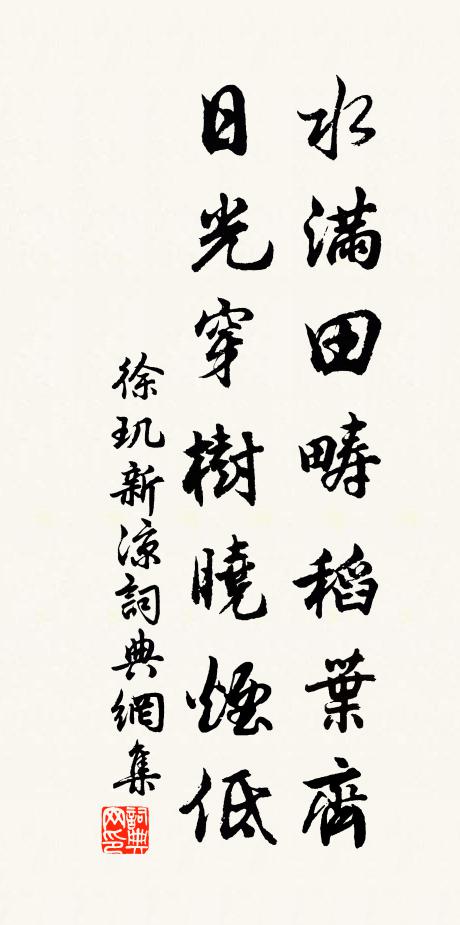 水滿田疇稻葉齊
日光穿樹曉煙低
徐璣新涼詞典網集
詞典
网印